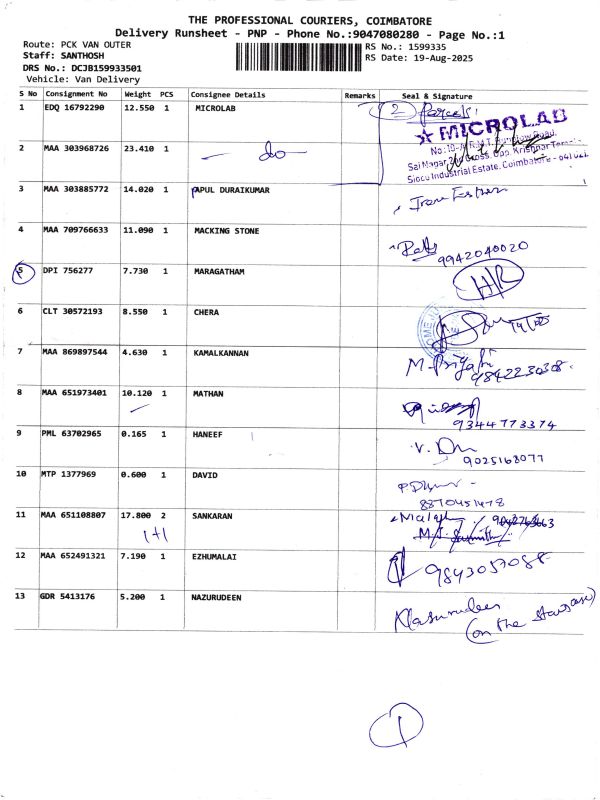 THE PROFESSIONAL COURIERS, COIMBATORE
Delivery Runsheet - PNP - Phone No.:9047080280 - Page No.:1
Route: PCK VAN OUTER
RS No.: 1599335
Staff: SANTHOSH
RS Date: 19-Aug-2025
DRS No.: DCJB159933501
Vehicle: Van Delivery
S No Consignment No Weight PCS Consignee Details Remarks Seal & Signature
1 EDQ 16792290 12.550 1 MICROLAB
2 Parcels
MICROLAB
Sai Nagar, Opp. Krishna
Sidco Industrial Estate, Coimbatore - 641 021
2 MAA 303968726 23.410 1 — do —
3 MAA 303885772 14.020 1 APUL DURAIKUMAR
4 MAA 709766633 11.090 1 MACKING STONE
9942040020
5 DPI 756277 7.730 1 MARAGATHAM
6 CLT 30572193 8.550 1 CHERA
7 MAA 869897544 4.630 1 KAMALKANNAN
M. Priya
9842230308
8 MAA 651973401 10.120 1 MATHAN
9344773374
9 PML 63702965 0.165 1 HANEEF
9025168077
10 MTP 1377969 0.600 1 DAVID
8870451478
11 MAA 651108807 17.800 2 SANKARAN
1+1
12 MAA 652491321 7.190 1 EZHUMALAI
9843057088
13 GDR 5413176 5.200 1 NAZURUDEEN
Nasurudeen
(on the staircase)
1